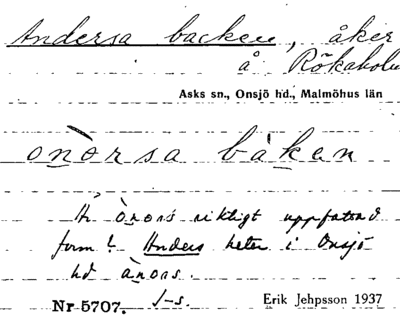 Andersa backen, åker
å Rökaholm
Asks sn., Onsjö hd., Malmöhus län
onòrsa bàken
Är ònors riktigt uppfattad
form? Anders heter i Onsjö
hd ànors.
Nr 5707. J-s. Erik Jehpsson 1937